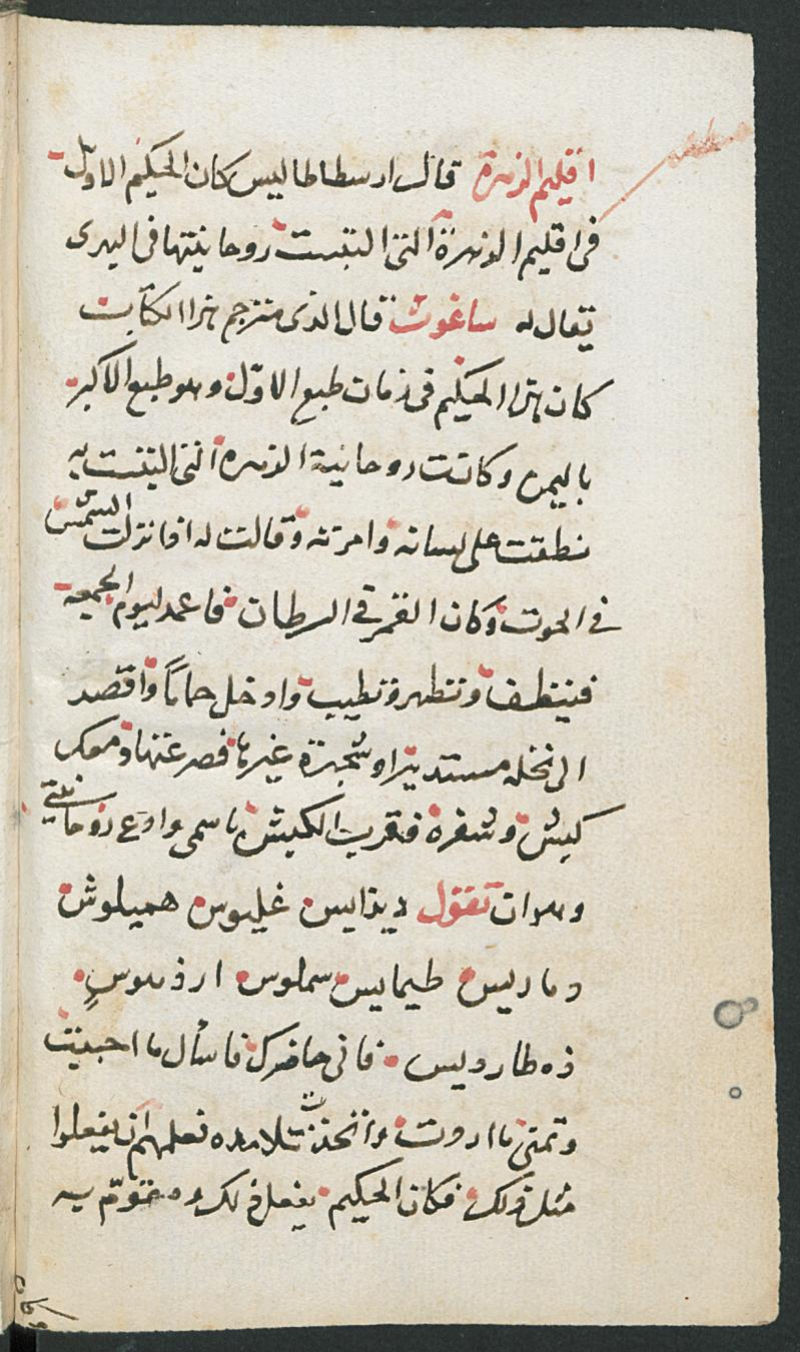 اقليم الزهرة قال ارسطاطاليس كان الحكيم الاول
فى اقليم الزهرة التى التبست روحانيتها فى الهدى
يقال له ساغوث قال الذى مترجم هذا الكتاب
كان هذا الحكيم فى زمان طبع الاوّل وهو طبع الاكبر
باليمن وكانت روحانية الزهره التى التبست به
نطقت على لسانه وامرته وقالت له اذا نزلت الشمس
فى الحوت وكان القمر فى السرطان فاعمد ليوم الجمعة
فتنظف وتتطهر وتطيب وادخل حماماً واقصد
الى نخله مستديرا وشجرة غيرها فصر عنها ومعك
كبش وشفره فقرب الكبش باسمى وادع روحانيتى
وهو ان تقول ديذايس غليوس هميلوش
دماريس طيمايس سملوس ارذهوسٍ
ذه طارويس فانى حاضرك فاسأل ما احببت
وتمنى ما اردت واتخذت تلامده تعلمهم ان يفعلوا
مثل ذلك فكان الحكيم يفعل ذلك به
وكان